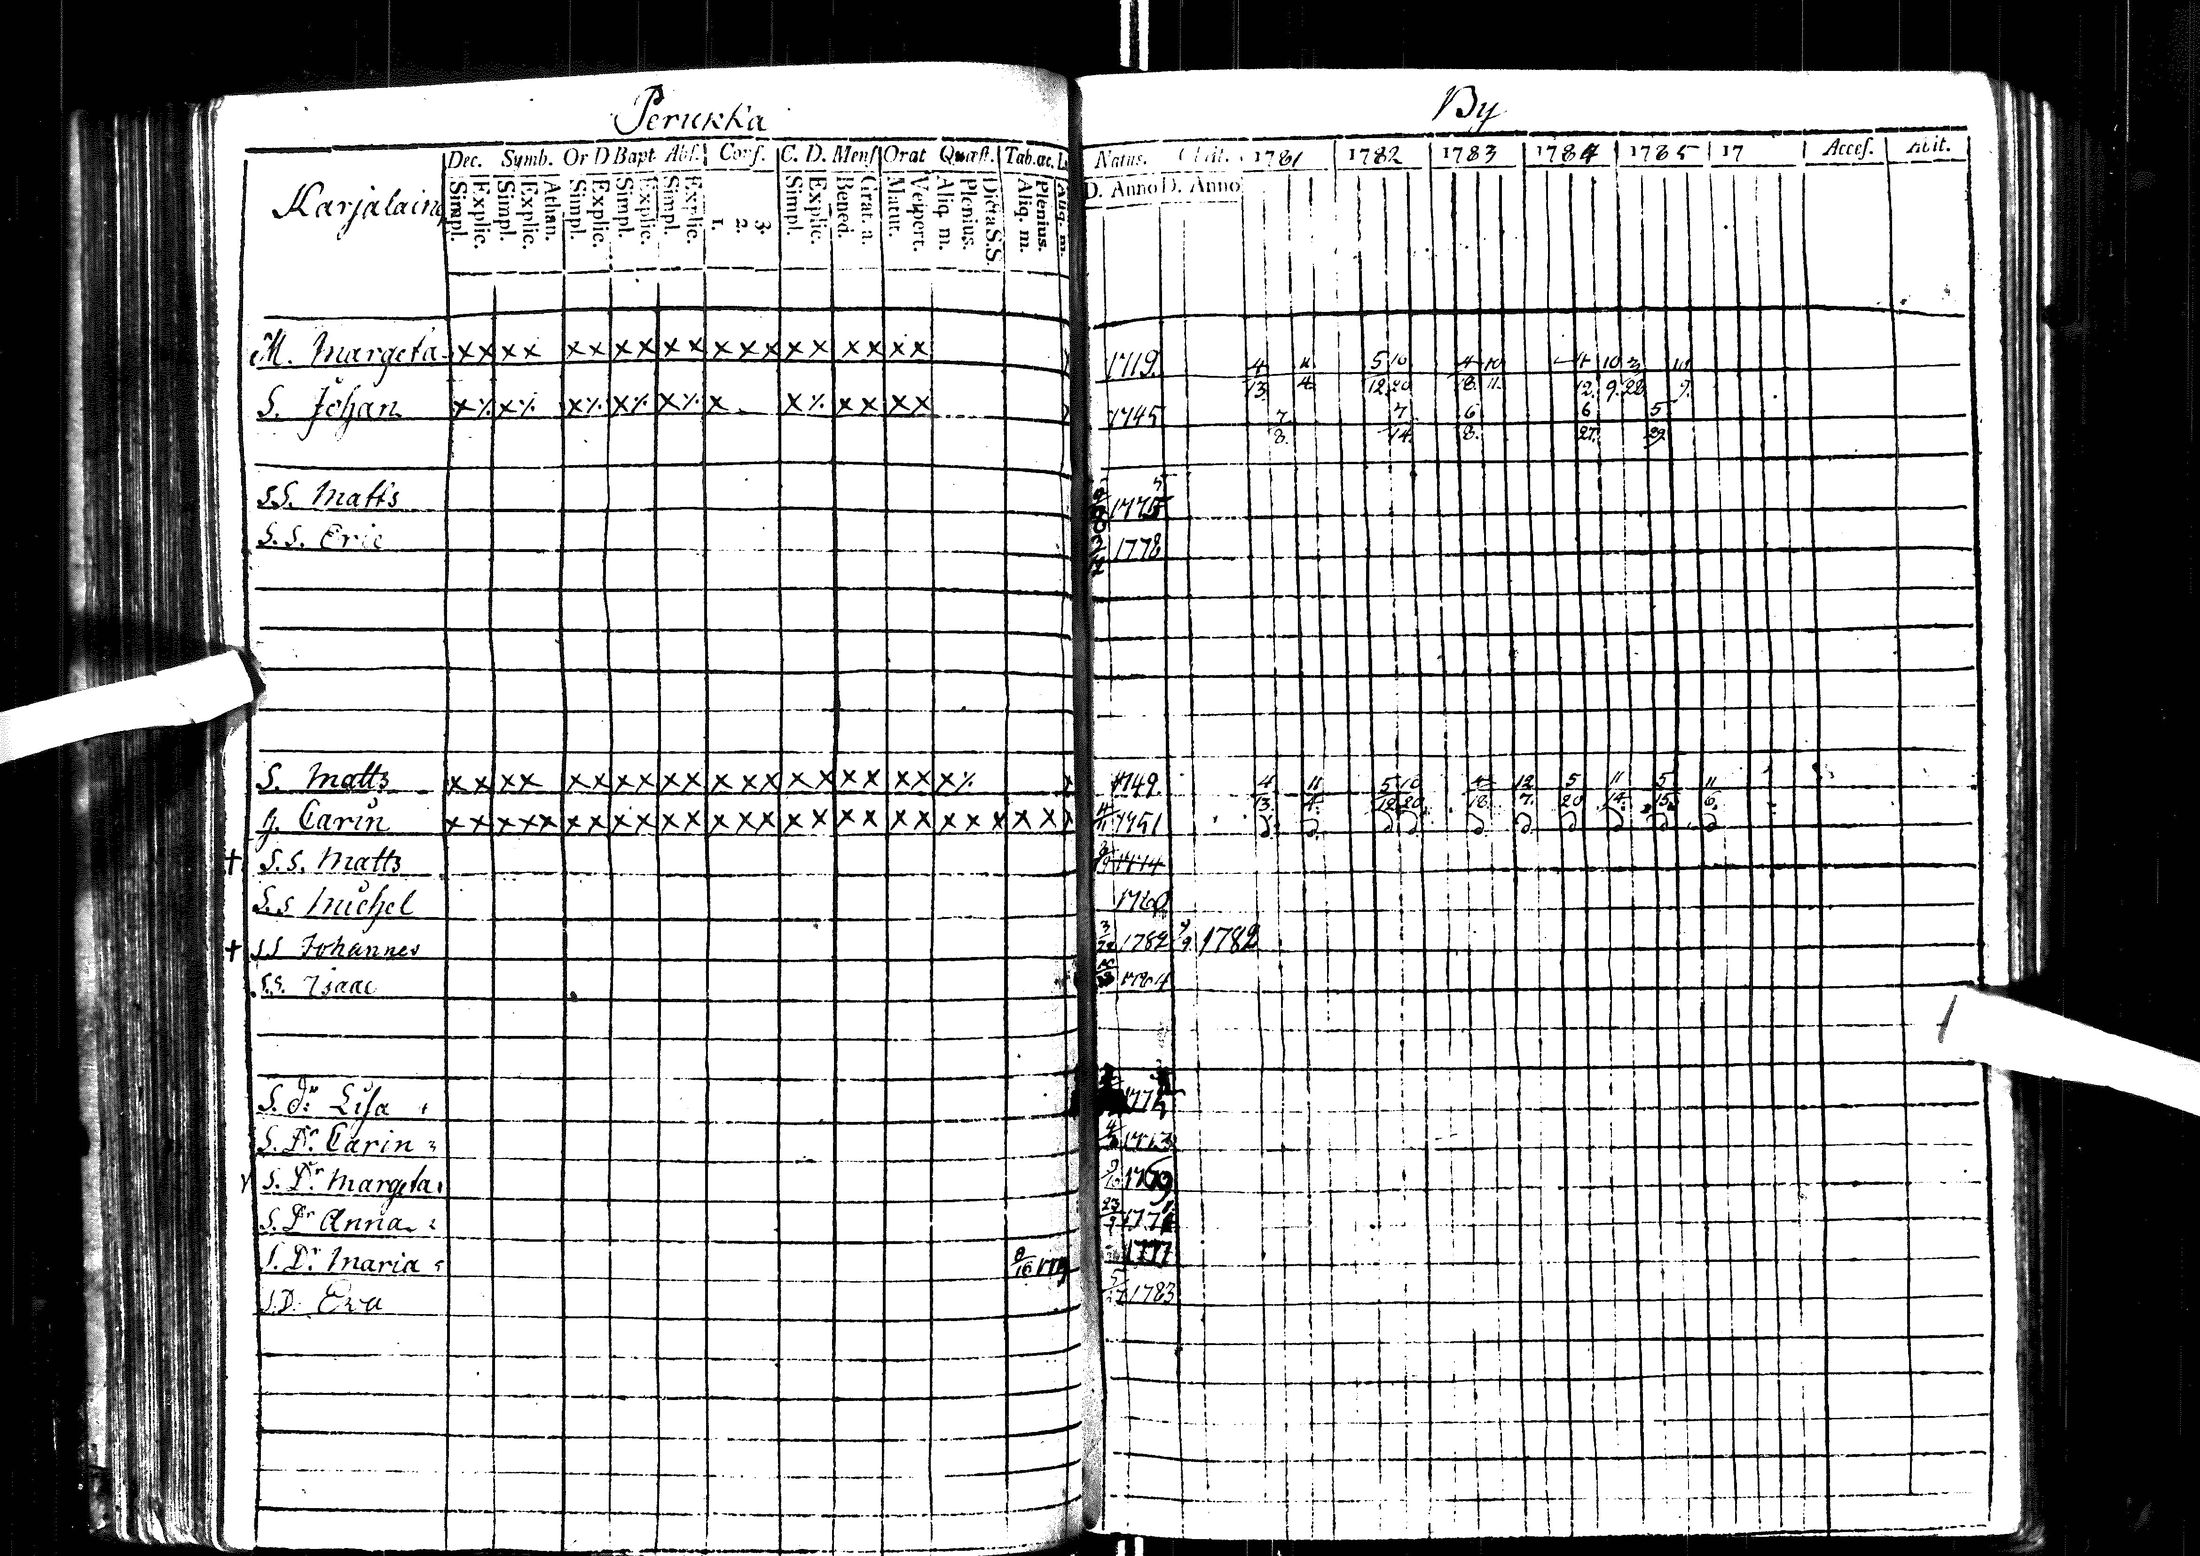 Perukka By
Dec. Symb. Or D Bapt Abs. Conf. C. D. Mens Orat Quæst. Tab.œc. Natus. Obit. 1781 1782 1783 1784 1785 17 Acces. Abit.
Karjalain
Simpl. Explic. Simpl. Explic. Athan. Simpl. Explic. Simpl. Explic. Simpl. Explic. 1. 2. 3. Simpl. Explic. Bened. Grat. a. Matut. Vespert. Aliq. m. Plenius. Dicta S.S. Aliq. m. Plenius. Aliq. m. D. Anno D. Anno
M. Margeta x x x x x x x x x x x x x x x x x x x 1719. 4/13. 11/4 5/12 10/20 4/18 10/11. 4/12. 10/9. 3/28
S. Johan x ⁒ x ⁒ x ⁒ x ⁒ x ⁒ x x ⁒ x x x x 1745 7/8. 7/14. 6/8. 6/27. 5/29
S.S. Matts 1775
S.S. Eric 1778
S. Matts x x x x x x x x x x x x x x x x x x x x ⁒ 1749 4/13. 11/4. 5/12 10/20. 4/18. 12/7. 5/20 11/14. 5/15 11/6.
H. Carin x x x x x x x x x x x x x x x x x x x x x x x x x 1751
+ S.S. Matts 1774
S.s Michel 1760
+ s.s Johannes 3/22 1782 4/9 1782
s.s. Isaac 1784
S. Dr. Lisa 1775
S. Dr. Carin
S. Dr. Margeta 1769
S. Dr Anna 1771
S. Dr. Maria 1777
S.D. Eva 1783